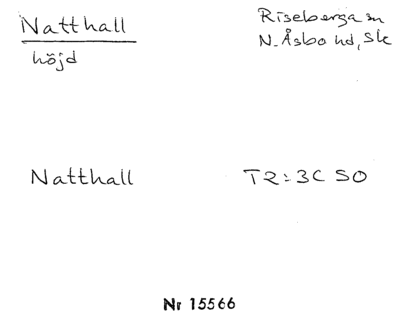 Natthall
höjd
Riseberga sn
N. Åsbo hd, Sk
Natthall
T2:3C SO
Nr 15566